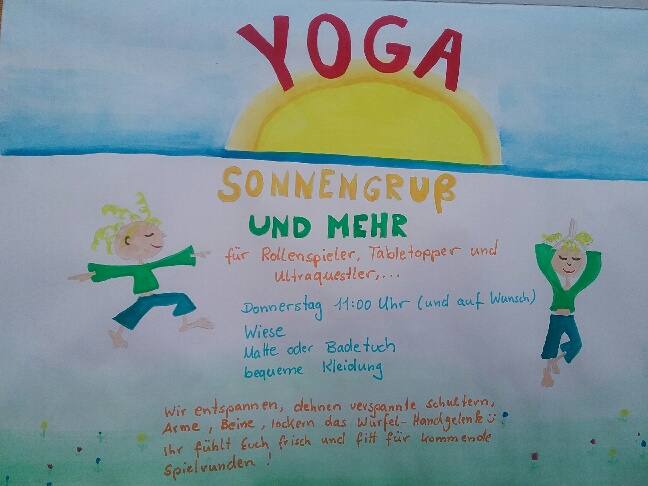 YOGA
SONNENGRUß
UND MEHR
für Rollenspieler, Tabletopper und
Ultraquestler,...
Donnerstag 11:00 Uhr (und auf Wunsch)
Wiese
Matte oder Badetuch
bequeme Kleidung
Wir entspannen, dehnen verspannte Schultern,
Arme, Beine, lockern das Würfel-Handgelenk
Ihr fühlt Euch frisch und fitt für kommende
Spielrunden!